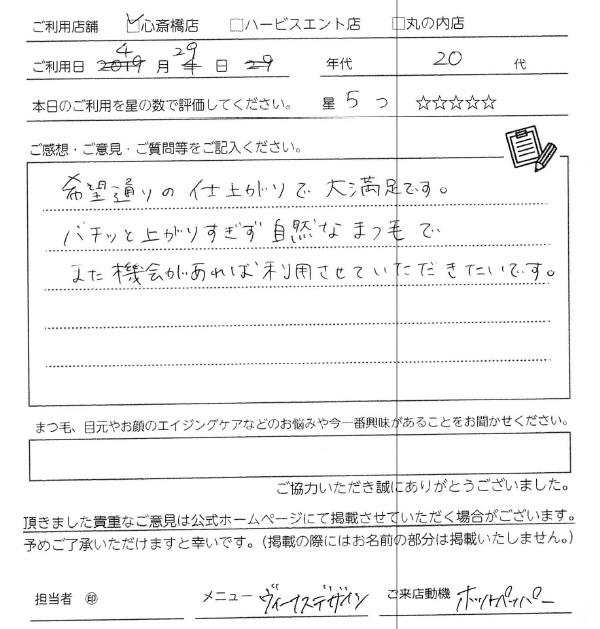 ご利用店舗 ☑心斎橋店 □ハービスエント店 □丸の内店
4 29
ご利用日 2019 月 4 日 29 年代 20 代
本日のご利用を星の数で評価してください。 星 5 つ ☆☆☆☆☆
ご感想・ご意見・ご質問等をご記入ください。
希望通りの仕上がりで大満足です。
バチッと上がりすぎず自然なまつ毛で
また機会があれば利用させていただきたいです。
まつ毛、目元やお顔のエイジングケアなどのお悩みや今一番興味があることをお聞かせください。
ご協力いただき誠にありがとうございました。
頂きました貴重なご意見は公式ホームページにて掲載させていただく場合がございます。
予めご了承いただけますと幸いです。(掲載の際にはお名前の部分は掲載いたしません。)
担当者 ㊞ メニュー ヴィーナスデザイン ご来店動機 ホットペッパー